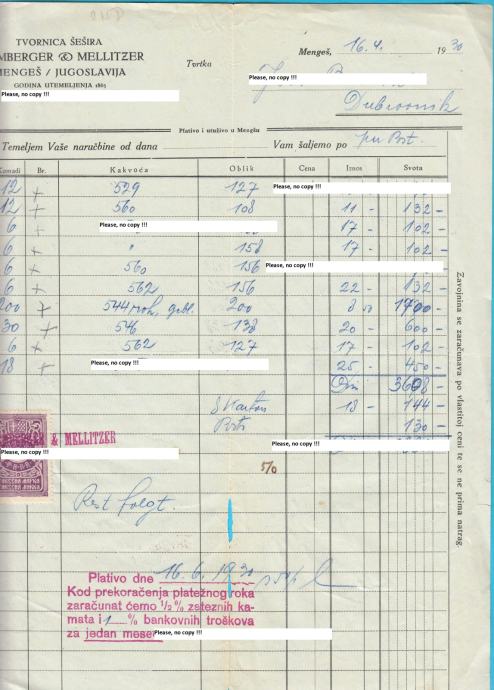 TVORNICA ŠEŠIRA
MBERGER & MELLITZER
MENGEŠ / JUGOSLAVIJA
GODINA UTEMELJENJA 1865
Please, no copy !!!
Tvrtka
Mengeš, 16.4. 1930
Please, no copy !!!
Dubrovnik
Plativo i utuživo u Mengšu
Temeljem Vaše naručbine od dana
Vam šaljemo po per Post.
Komadi Br. Kakvoća Oblik Cena Iznos Svota
12 + 529 127 Please, no copy !!!
12 + 560 108 11 - 132 -
6 + Please, no copy !!! 17 - 102 -
6 + " 158 17 - 102 -
6 + 560 156 Please, no copy !!!
6 + 562 156 22 - 132 -
200 + 544 200 8 50 1700 -
30 + 546 138 20 - 600 -
6 + 562 127 17 - 102 -
18 + Please, no copy !!! 25 - 450 -
Din 3608 -
18 - 144 -
130 -
& MELLITZER
Please, no copy !!!
Please, no copy !!!
Rest folgt.
Plativo dne 16.6.1930
Kod prekoračenja platežnog roka
zaračunat ćemo 1/2 % zateznih ka-
mata i 1 % bankovnih troškova
za jedan mesec Please, no copy !!!
Zavojnina se zaračunava po vlastitoj ceni te se ne prima natrag.